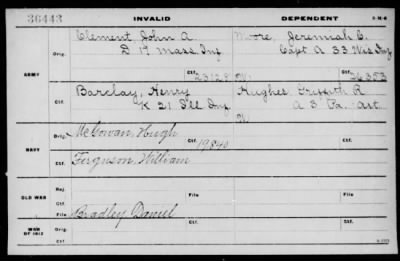 36443
INVALID
DEPENDENT
3-H-6
ARMY
Orig.
Clement John A
D 17 Mass. Inf
Ctf.
23128
Moore, Jeremiah C.
Capt A 33 Wis Inf
W.
26353
Orig.
Barclay, Henry
K 21 Ill Inf.
Ctf.
Hughes Griffith R
A 3" Pa. Art.
W.
NAVY
Orig.
McGowan, Hugh
Ctf.
19840
Ctf.
Ferguson, William
OLD WAR
Rej.
Ctf.
File
File
Ctf.
File
Bradley Daniel
WAR OF 1812
Ctf.
Ctf.